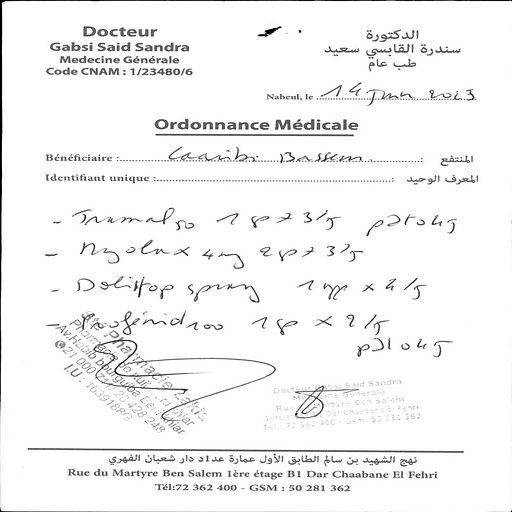 Docteur
Gabsi Said Sandra
Medecine Générale
Code CNAM : 1/23480/6
الدكتورة
سندرة القابسي سعيد
طب عام
Nabeul, le 14 Juin 2023
Ordonnance Médicale
Bénéficiaire : Laaribi Bassem المنتفع :
Identifiant unique : المعرف الوحيد :
- Tramal 50 1 gp x 3/j
- Myolax 4mg 2 gp x 3/j
- Dolistop spray x 2/j
- Profénid 100 1 gp x 2/j
Pharmacie
I.U : 1639188/G
Docteur Gabsi Said Sandra
Medecine Générale
Rue du Martyre Ben Salem
1ère étage B1 Dar Chaabane El Fehri
Tél: 72 362 400 - Gsm: 50 281 362
نهج الشهيد بن سالم الطابق الأول عمارة عدا1د دار شعبان الفهري
Rue du Martyre Ben Salem 1ère étage B1 Dar Chaabane El Fehri
Tél:72 362 400 - GSM : 50 281 362